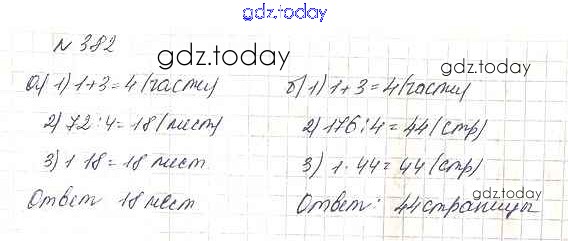 gdz.today
N 382
gdz.today
gdz.today
а) 1) 1+3=4 (части)
2) 72:4=18 (мест)
3) 1·18=18 мест
Ответ 18 мест
б) 1) 1+3=4 (части)
2) 176:4=44 (стр)
3) 1·44=44 (стр)
gdz.today
Ответ: 44 страницы